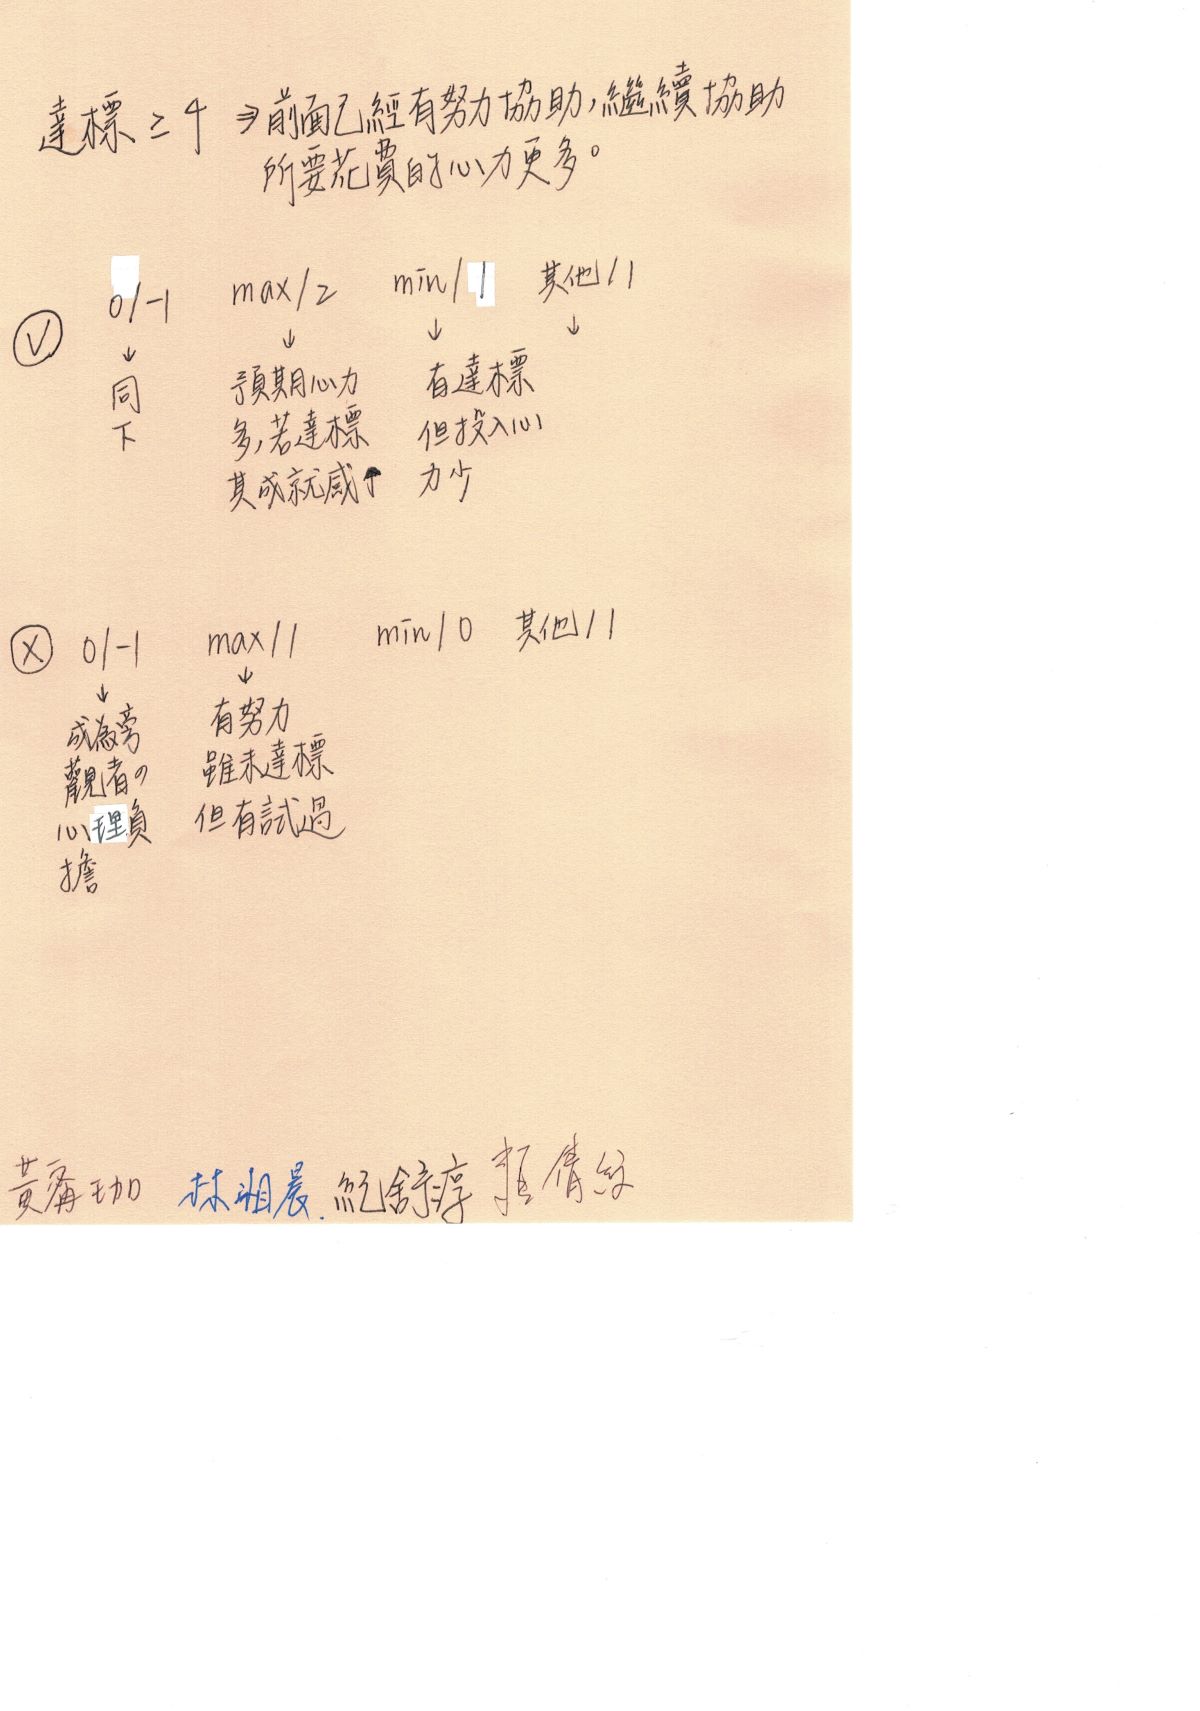 達標 ≥ 4 ⇒ 前面已經有努力協助,繼續協助
所要花費的心力更多。
Ⓥ 0/-1 max/2 min/1 其他/1
↓ ↓ ↓ ↓
同 預期心力 有達標
下 多,若達標 但投入心
其成就感↑ 力少
Ⓧ 0/-1 max/1 min/0 其他/1
↓ ↓
成為旁 有努力
觀者の 雖未達標
心理負 但有試過
擔
黃 珈 林湘晨 紀舒淳 倩紋